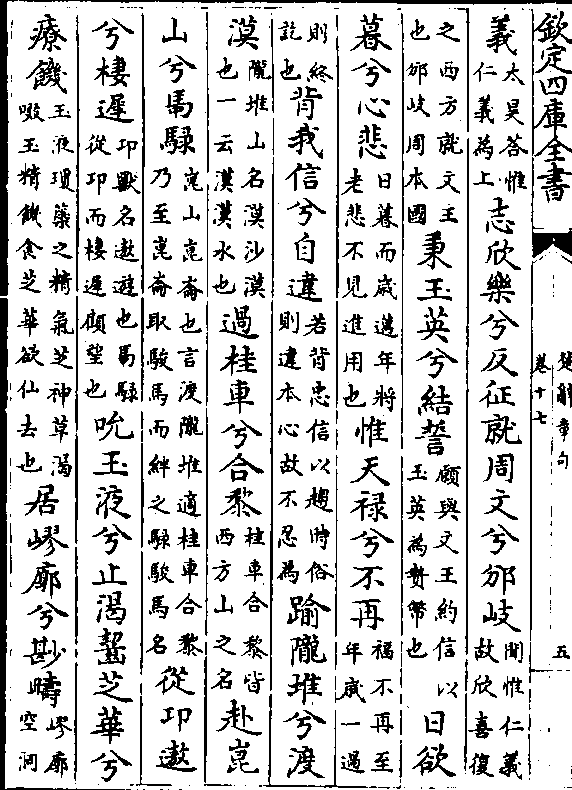 欽定四庫全書
楚辭章句
卷十七
五
義太昊答惟仁義為上志欣樂兮反征就周文兮邠岐聞惟仁義故欣喜復
之西方就文王也邠岐周本國秉玉英兮結誓願與文王約信以玉英為贄幣也日欲
暮兮心悲日暮而歲邁年將老悲不見進用也惟天祿兮不再福不再至年歲一過
則終訖也背我信兮自違若背忠信以趨時俗則違本心故不忍為踰隴堆兮渡
漠隴堆山名漠沙漠也一云漢漢水也過桂車兮合黎桂車合黎皆西方山之名赴崑
山兮馽騄崑山崑崙也言渡隴堆適桂車合黎乃至崑崙取駿馬而絆之騄駿馬名從卭遨
兮棲遲卭獸名遨遊也馽騄從卭而棲遲顧望也吮玉液兮止渴齧芝華兮
療饑玉液瓊蘂之精氣芝神草渴啜玉精饑食芝華欲仙去也居嵺廓兮尠疇嵺廓空洞